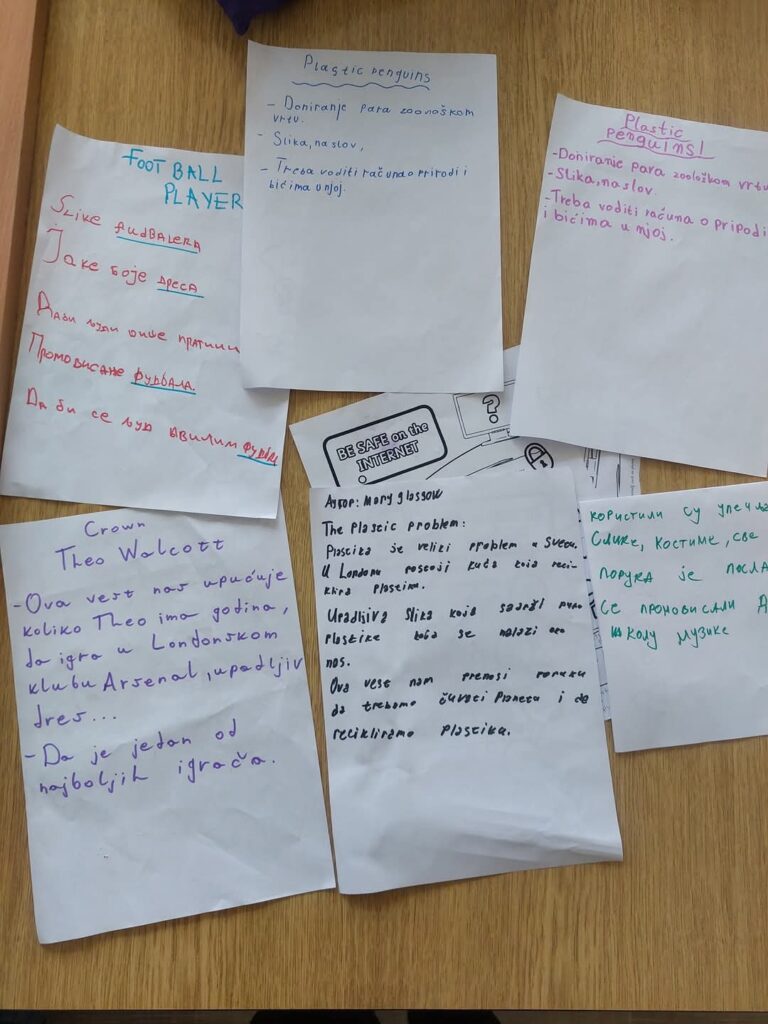 Plastic penguins
- Doniranje para zoološkom
vrtu.
- Slika, naslov,
- Treba voditi računa o prirodi i
bićima u njoj.
Plastic
penguins!
- Doniranje para zoološkom vrtu
- Slika, naslov.
- Treba voditi računa o pripodi
i bićima u njoj.
FOOTBALL
PLAYER
Slike fudbalera
Јаке боје дреса
Да би људи више пратили
Промовисање фудбала.
Да би се људ бавилим
BE SAFE on the
INTERNET
?
Crown
Theo Walcott
- Ova vest nas upućuje
koliko Theo ima godina,
da igra u Londonskom
klubu Arsenal, upadljiv
dres...
- Da je jedan od
najboljih igrača.
Аутор: Mary glassow
The Plastic problem:
Plastika je veliki problem u svetu.
U Londonu postoji kuća koja reci-
klira plastiku.
Upadljiva slika koja sadrži puno
plastike koja se nalazi oko
nas.
Ova vest nam prenosi poruku
da trebamo čuvati Planetu i da
recikliramo plastiku.
користили су
слике, костиме, све
порука је
се промовисали
школу музике